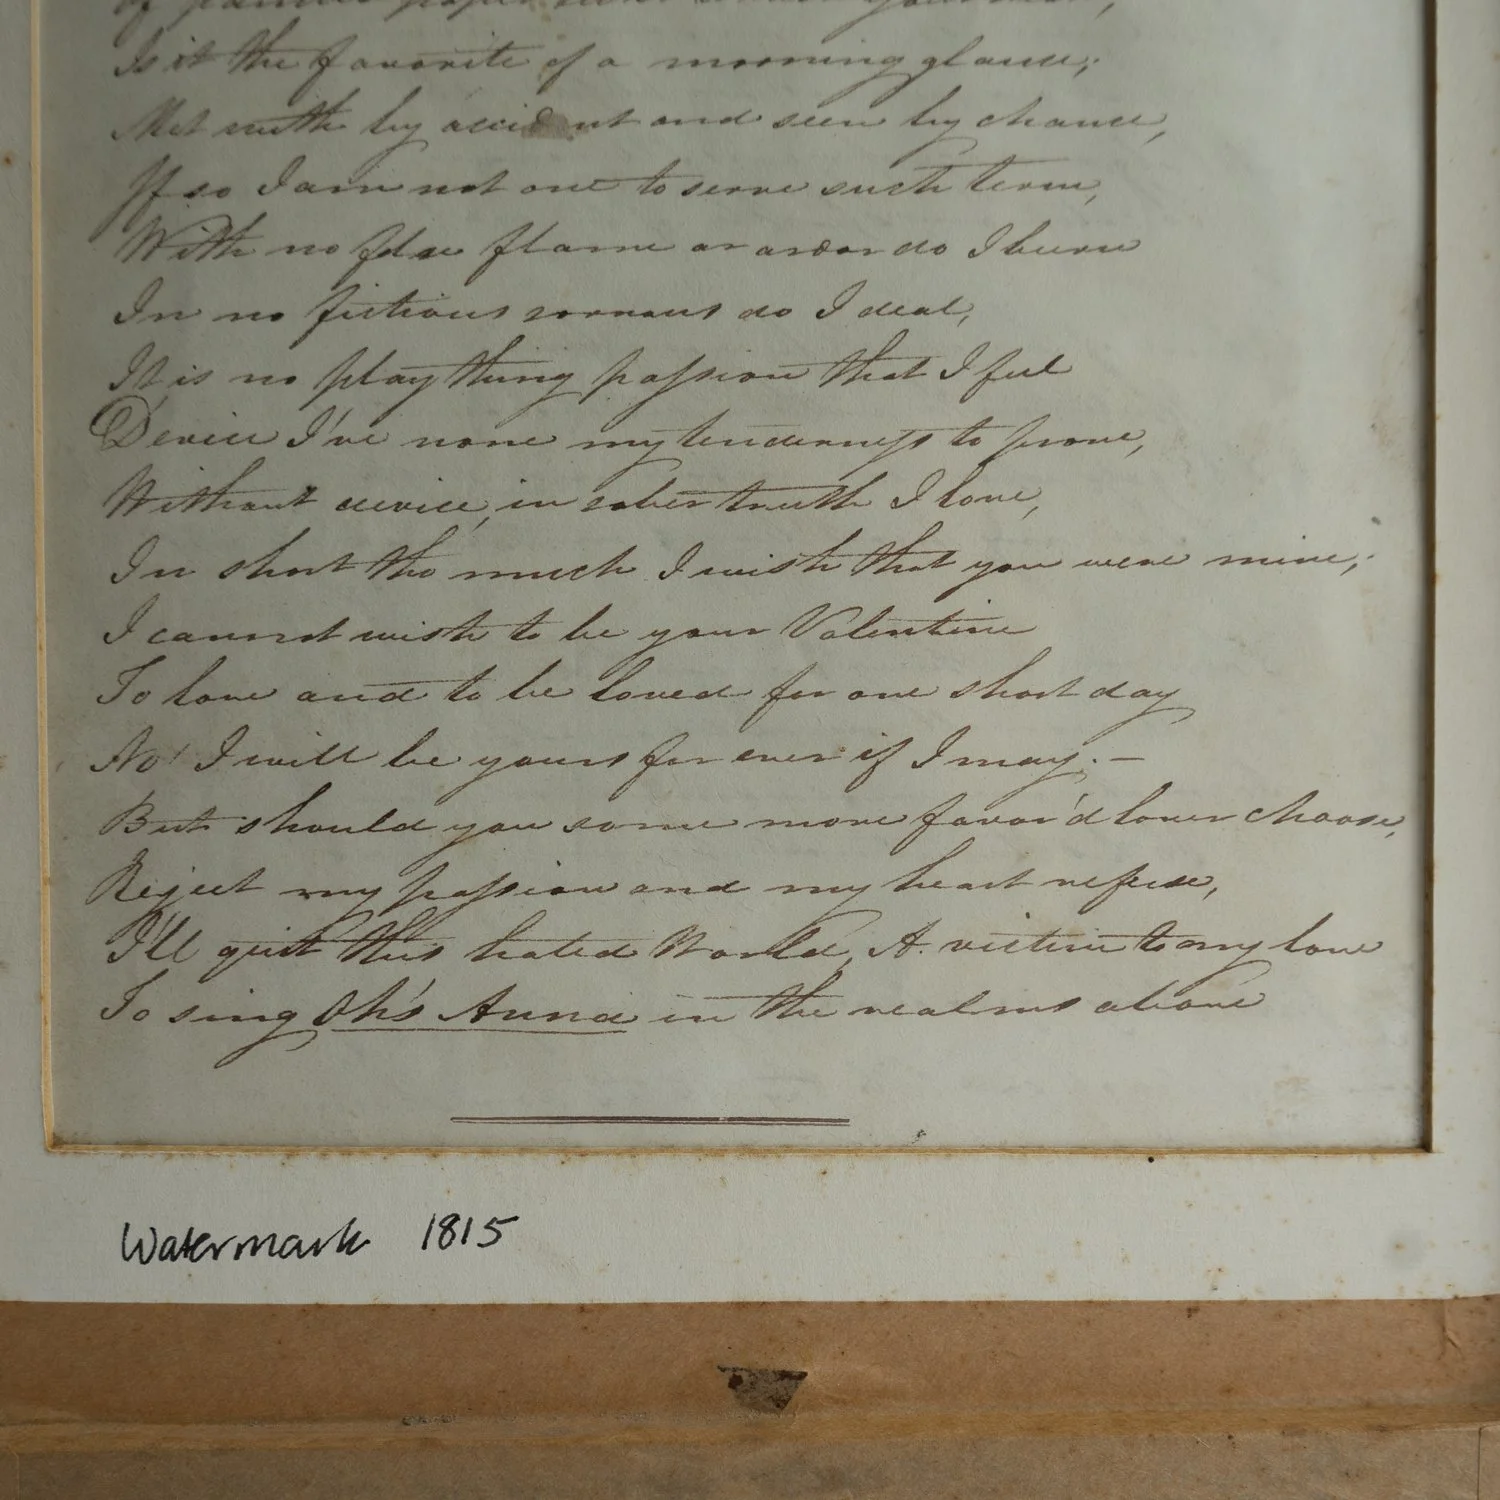 of painted paper
Is it the favorite of a morning glance;
Met with by accident and seen by chance,
If so I am not one to serve such term,
With no false flame or ardor do I burn
In no fictious sorrows do I deal,
It is no play thing passion that I feel
Device I've none my tenderness to prove,
Without device, in sober truth I love,
In short tho much I wish that you were mine;
I cannot wish to be your Valentine
To love and to be loved for one short day
No! I will be yours for ever if I may. —
But should you some more favor'd lover choose,
Reject my passion and my heart refuse,
I'll quit this hated World, A. victim to my love
To sing Oh's Anna in the realms above
Watermark 1815